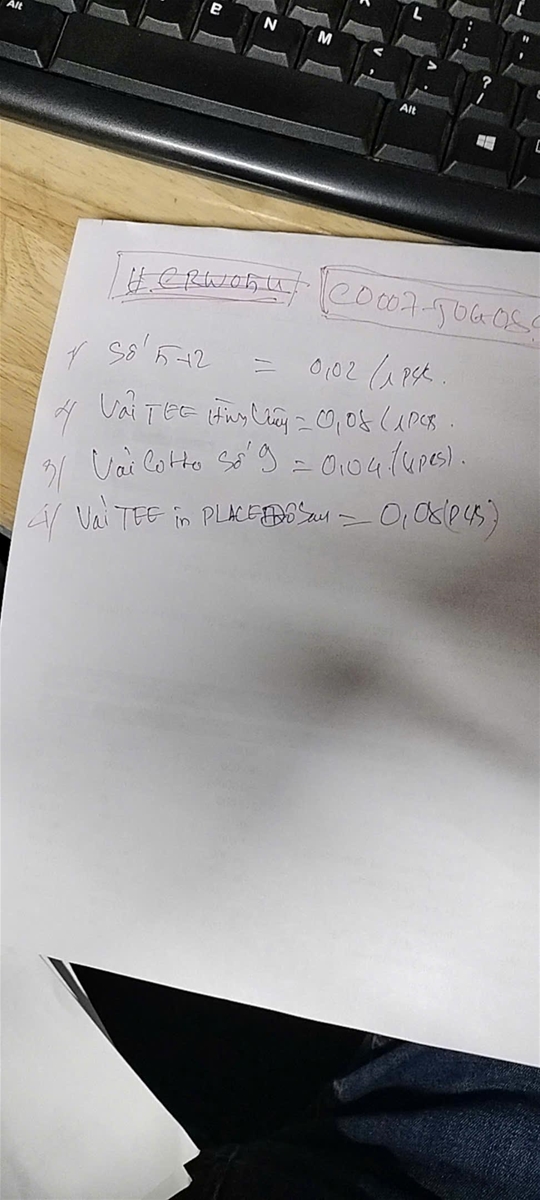 Alt B N M L < , > . ? / Alt
#.CRW054 C0007-JOG08
1/ Số 5-12 = 0,02/1pcs.
2/ Vải TEE = 0,08/1pcs.
3/ Vải Cotto Số 9 = 0,04/(1pcs).
4/ Vải TEE in PLACE Sau = 0,08(pcs)